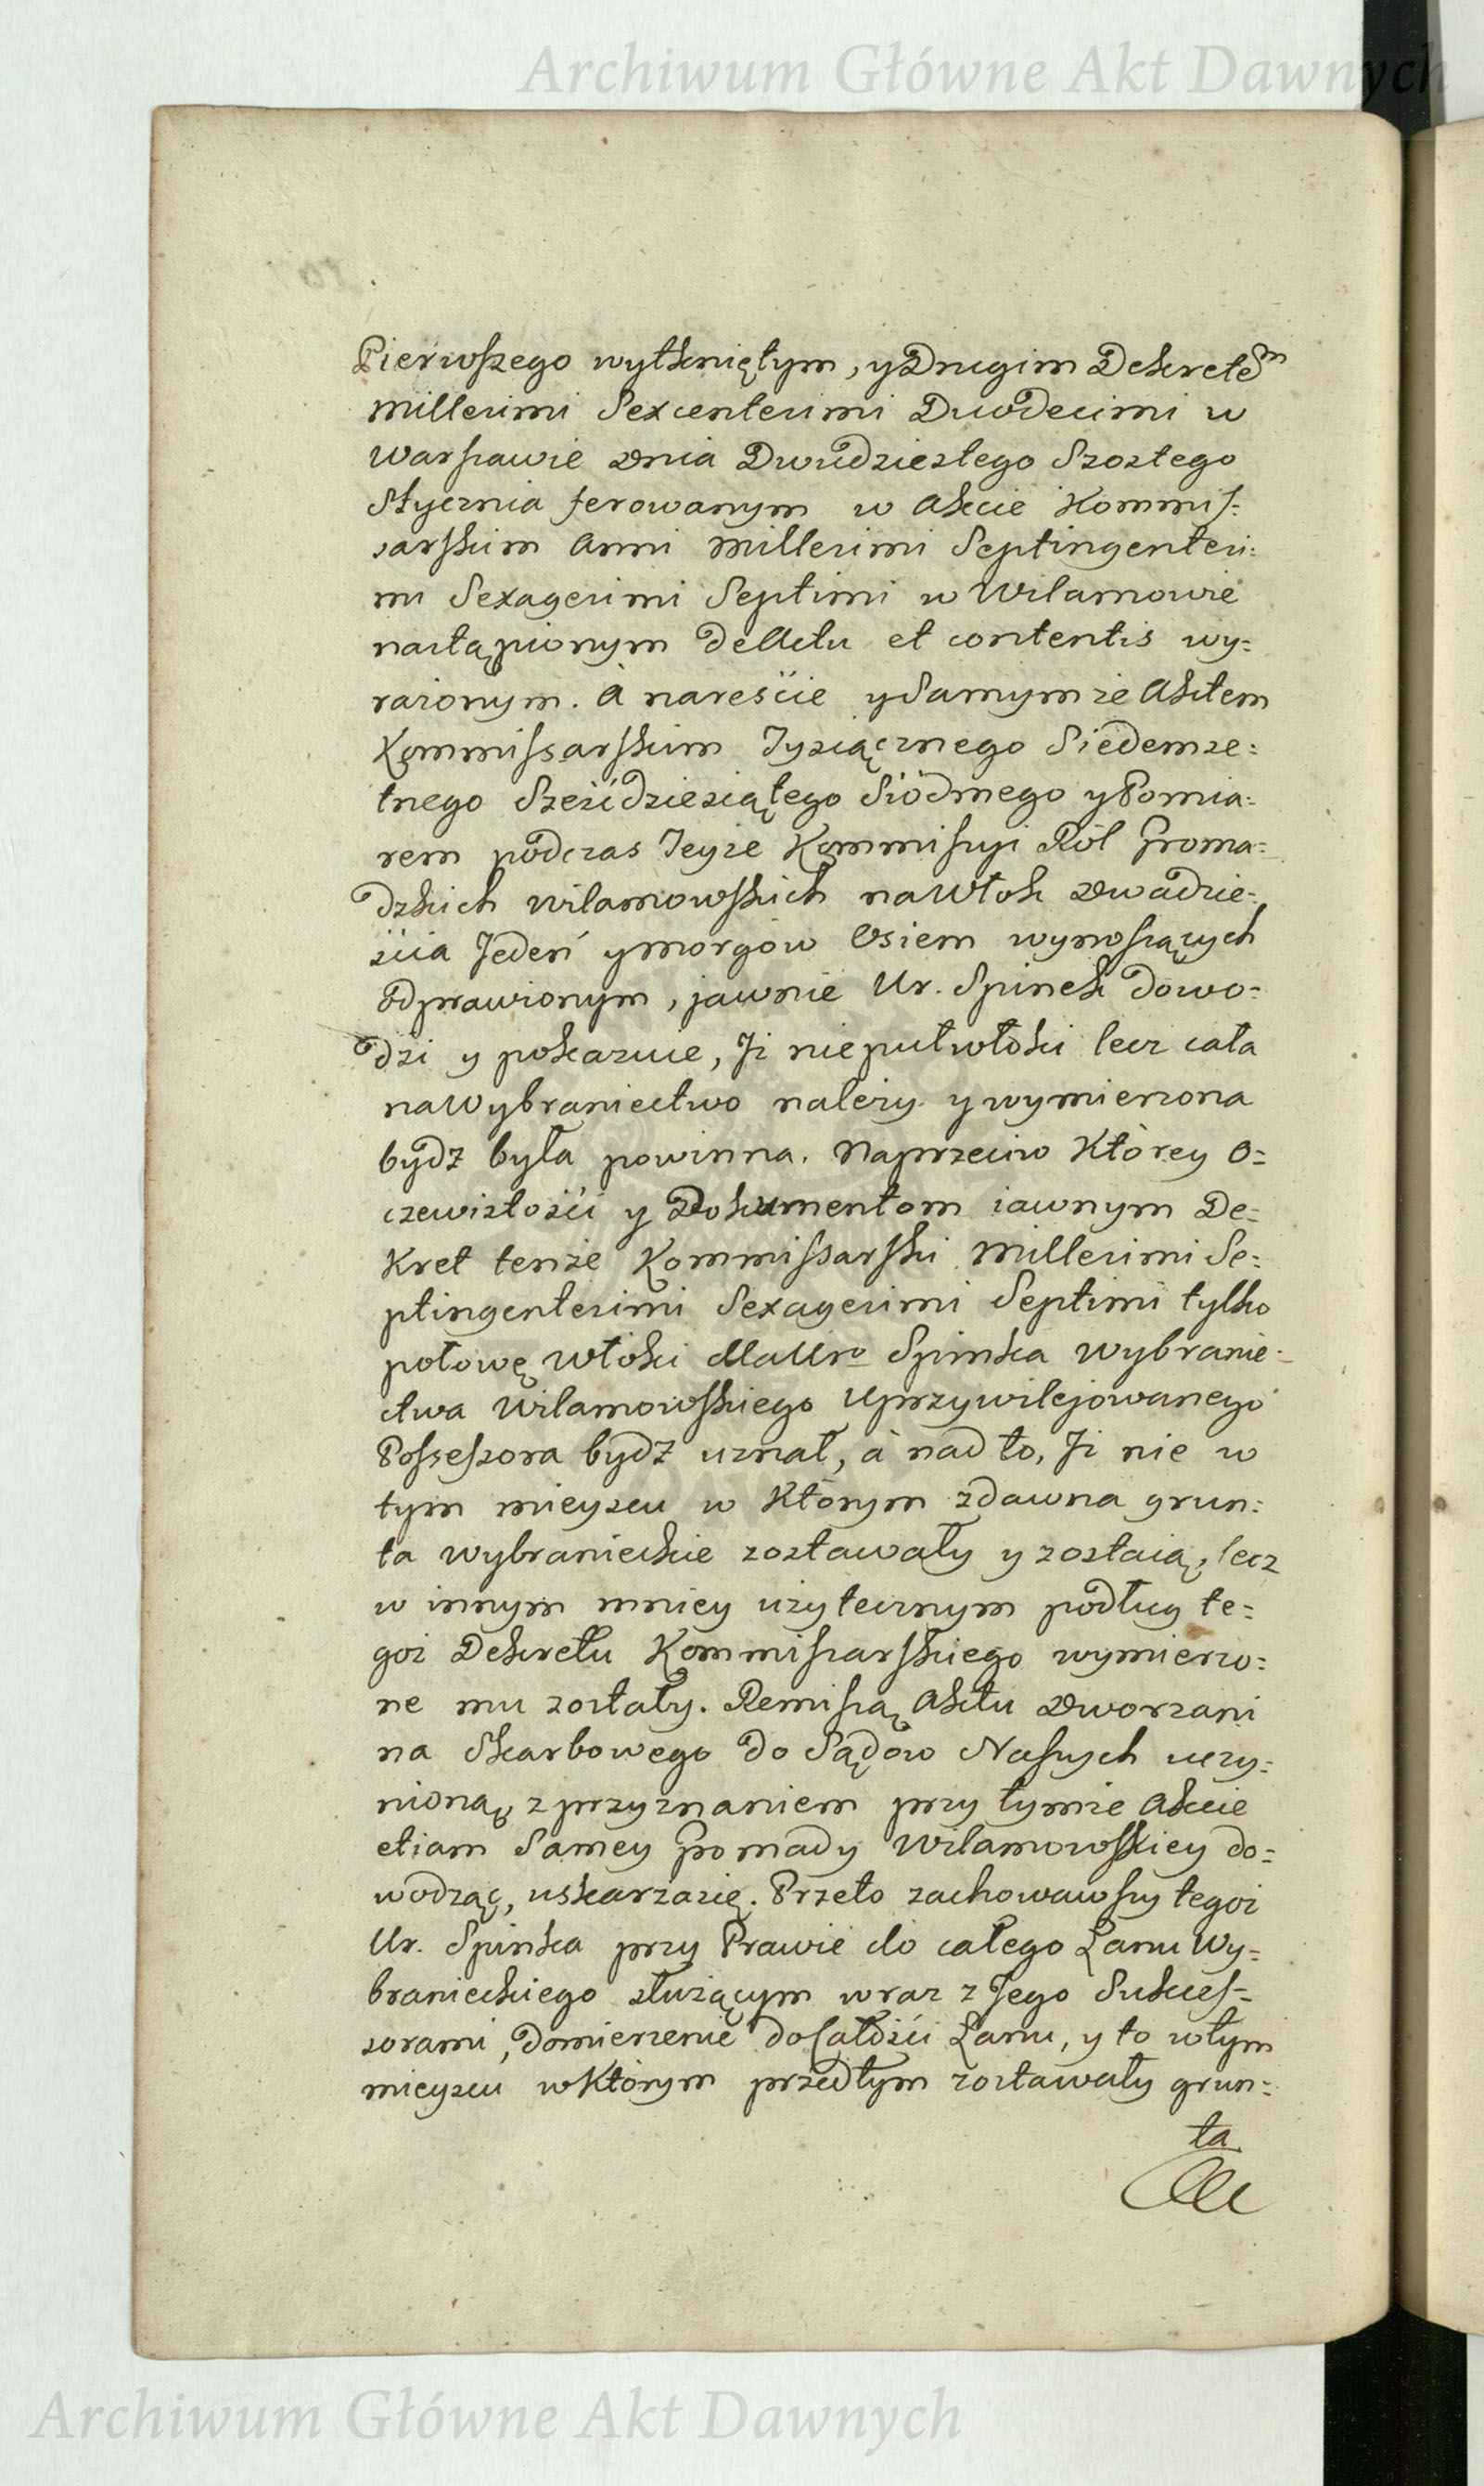 Archiwum Główne Akt Dawnych
Pierwszego wytkniętym, y Drugim Dekretem
Millesimi Sexcentesimi Duodecimi w
Warszawie dnia Dwudziestego Szostego
Stycznia ferowanym w Akcie Kommis:
sarskim Anni Millesimi Septingentesi:
mi Sexagesimi Septimi w Wilamowie
nastąpionym de Actu et contentis wy:
rażonym. A nareście y Samymże Aktem
Kommissarskim Tysiącznego Siedemse:
tnego Sześćdziesiątego Siódmego y Pomia:
rem podczas Teyże Kommissyi Ról Groma:
dzkich Wilamowskich na Włok dwadzie:
ścia Jeden y morgów Osiem wynoszących
odprawionym, jawnie Ur. Spinek dowo:
dzi y pokazuie, Iż nie puł włoki lecz cała
na Wybraniectwo należy y wymierzona
bydz była powinna. Naprzeciw Którey O:
czewistości y Dokumentom iawnym De:
kret tenże Kommissarski Millesimi Se:
ptingentesimi Sexagesimi Septimi tylko
połowę Włoki dla Uro Spinka Wybranie:
ctwa Wilamowskiego Uprzywilejowanego
Possessora bydz uznał, à nad to, Iż nie w
tym mieyscu w Którym zdawna grun:
ta Wybranieckie zostawały y zostaią, lecz
w innym mniey użytecznym podług te:
goż Dekretu Kommissarskiego wymierzo:
ne mu zostały. Remissą Aktu Dworzani
na Skarbowego do Sądów Naszych uczy:
nioną, z przyznaniem przy tymże Akcie
etiam Samey Gromady Wilamowskiey do:
wodząc, uskarzasię. Przeto zachowawszy tegoż
Ur. Spinka przy Prawie do całego Łanu Wy:
branieckiego służącym wraz z Jego Sukces=
sorami, domierzenie do Całości Łanu, y to w tym
mieyscu w Którym przedtym zostawały grun:
ta
Archiwum Główne Akt Dawnych